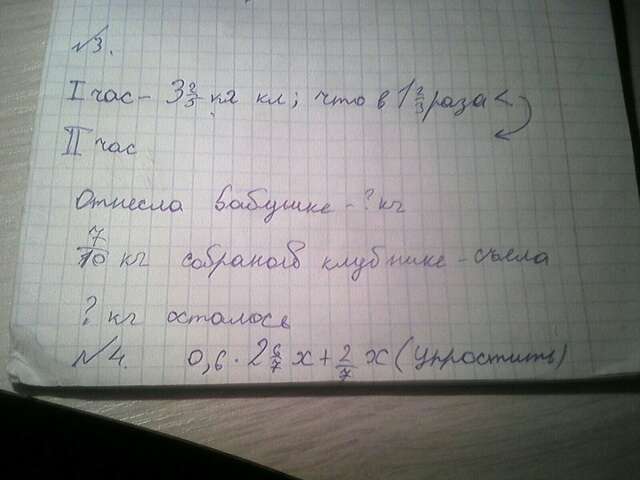 №3.
I час - 3 2/5 кг кл; что в 1 2/3 раза <
II час
Отнесла бабушке - ? кг
7/10 кг собраной клубнике - съела
? кг осталось
№4. 0,6 · 2 6/7 x + 2/7 x (упростить)